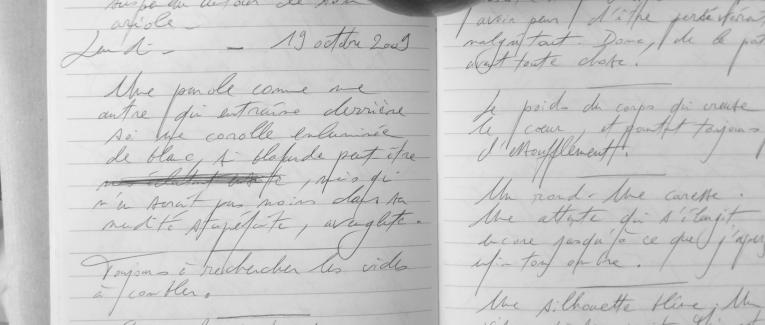 ariole -
Lundi - - 19 octobre 2009
Une parole comme une
autre qui entraîne derrière
soi une corolle enluminée
de blanc, si blafarde peut être
, mais qui
n'en serait pas moins dans sa
nudité stupéfiante, aveuglante.
Toujours à rechercher les vides
à combler.
avoir peur d'être
malgré tout. Donc, de le
avant toute chose.
Le poids du corps qui creuse
le coeur, et pourtant toujours
d'essoufflement.
Un rond. Une caresse.
Une attente qui s'élargit
encore jusqu'à ce que j'
enfin ton ombre.
Une silhouette blême. Un